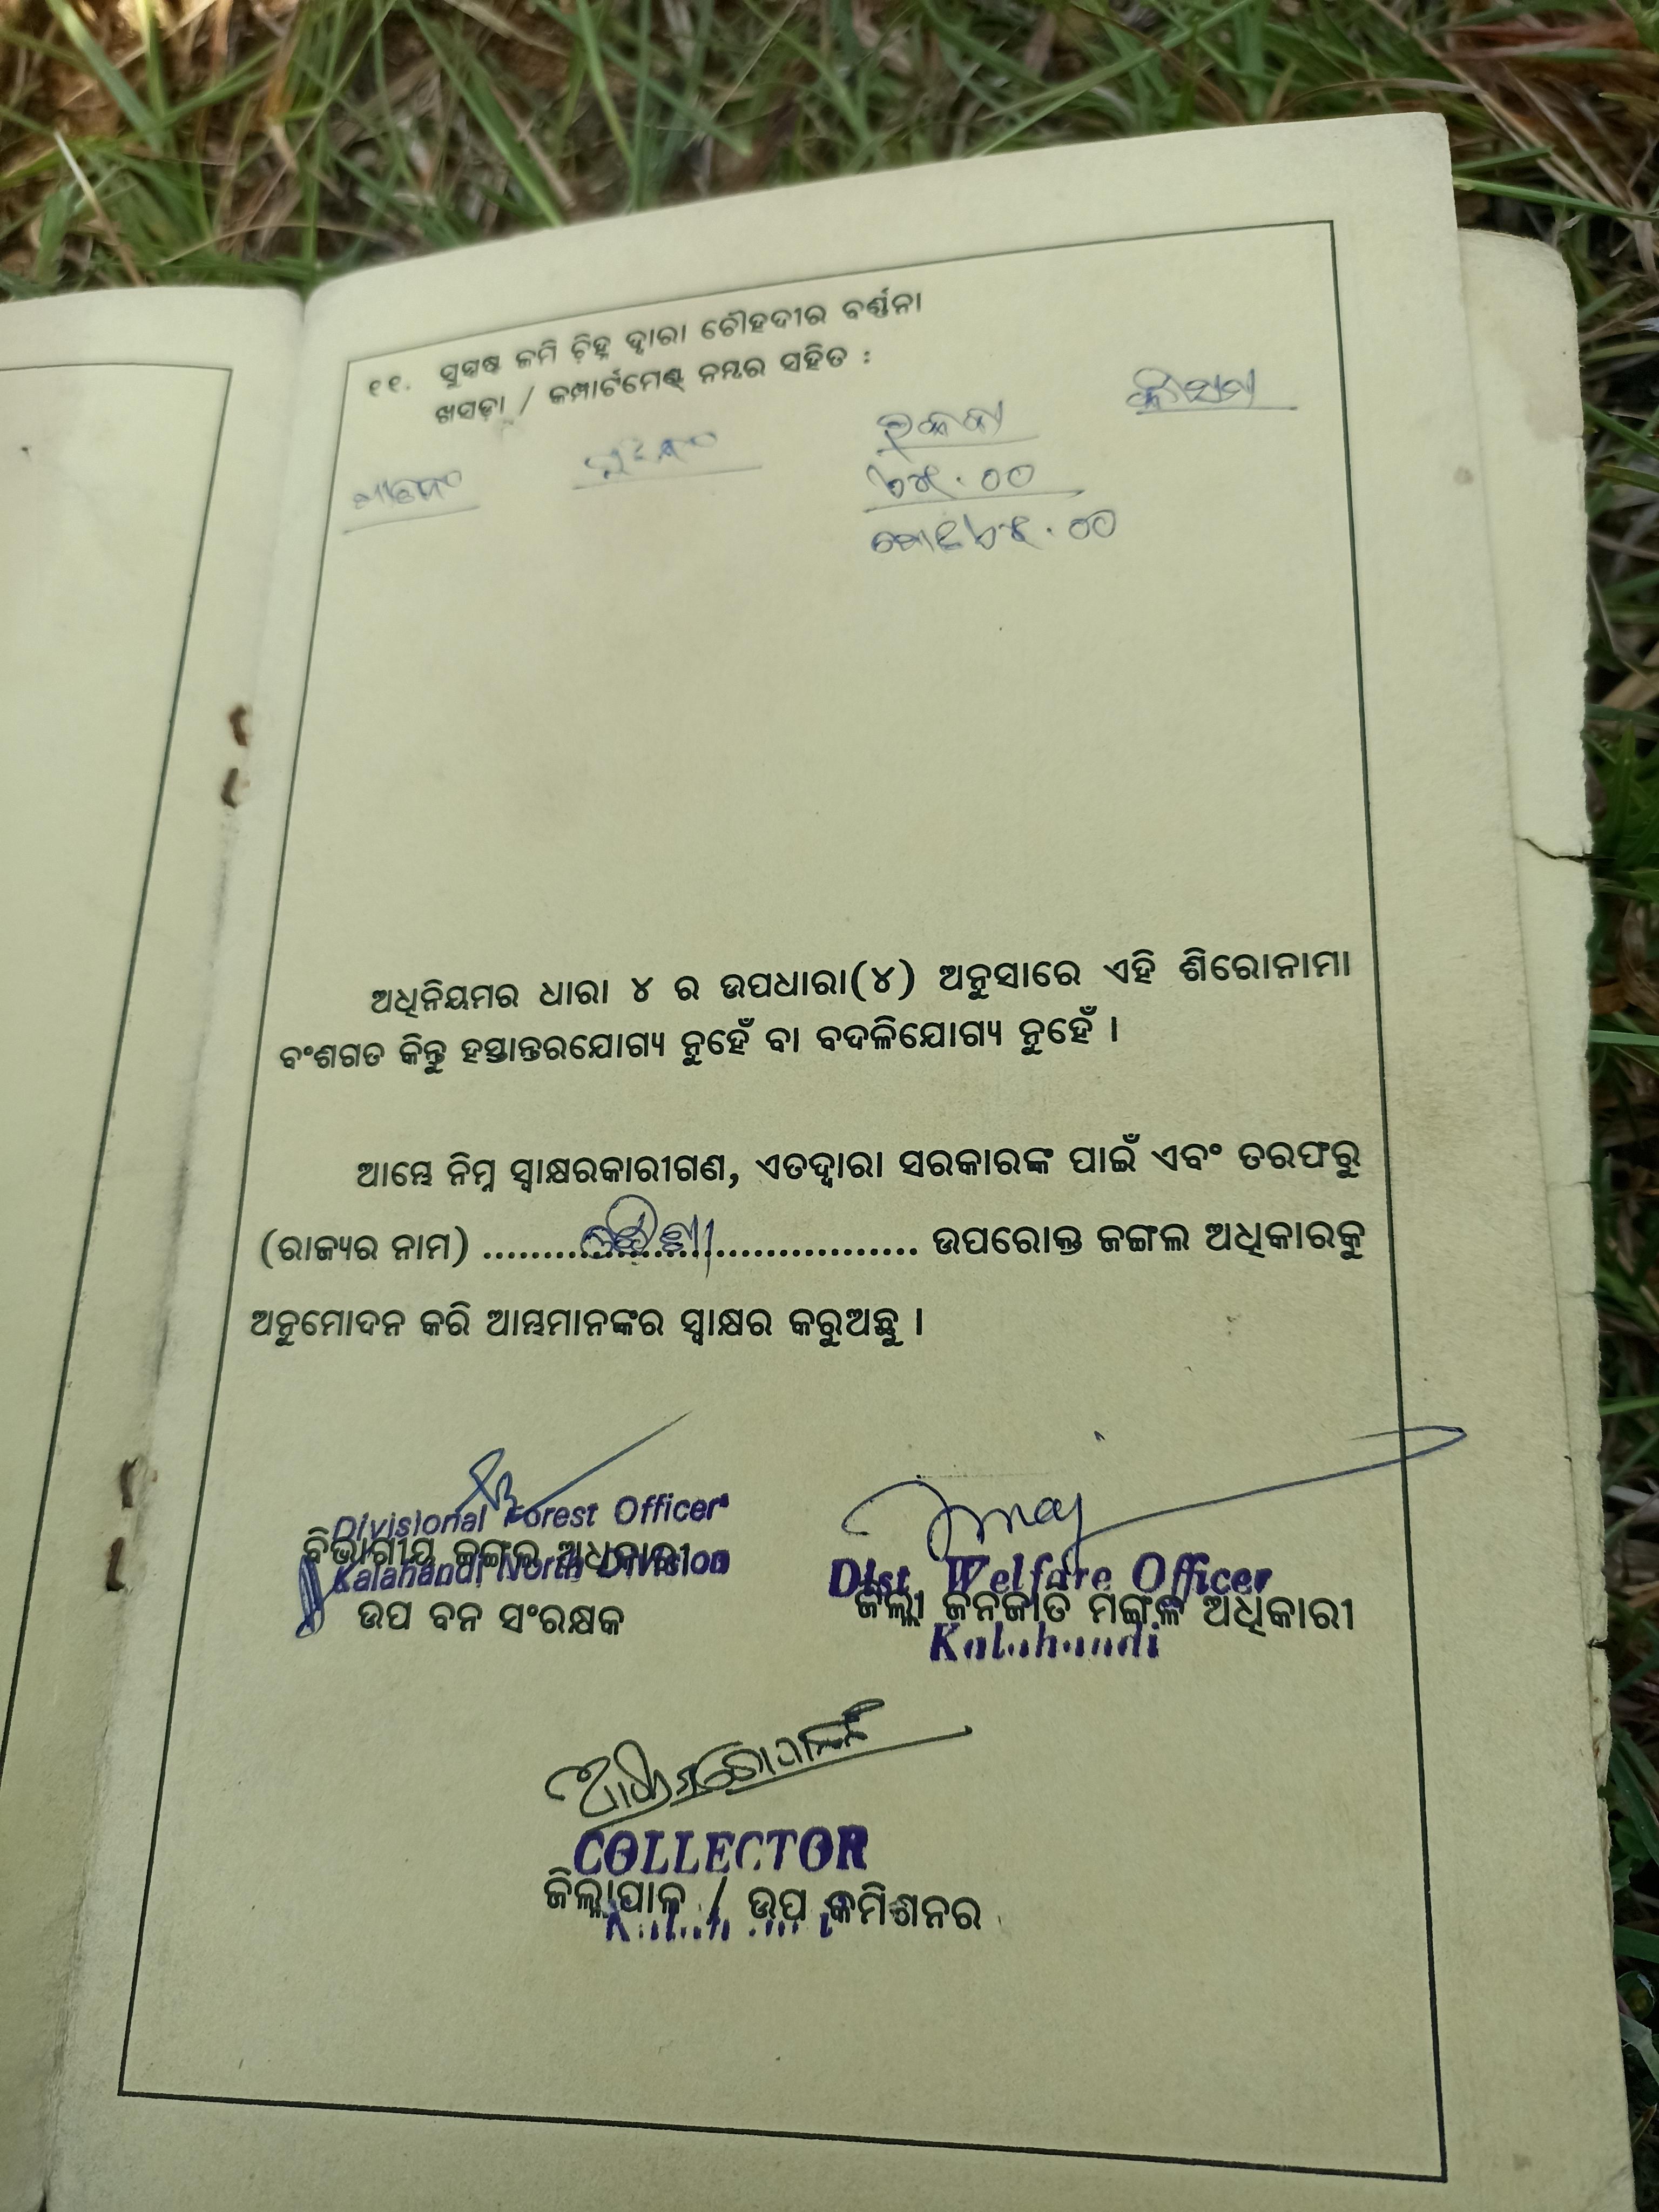 ୧୧. ସୁସ୍ପଷ୍ଟ ଜମି ଚିହ୍ନ ଦ୍ୱାରା ଚୌହଦୀର ବର୍ଣ୍ଣନା
ଖସଡ଼ା / କମ୍ପାର୍ଟମେଣ୍ଟ୍ ନମ୍ବର ସହିତ :
ରକବା
କିସମ
ଅଧିନିୟମର ଧାରା ୪ ର ଉପଧାରା(୪) ଅନୁସାରେ ଏହି ଶିରୋନାମା
ବଂଶଗତ କିନ୍ତୁ ହସ୍ତାନ୍ତରଯୋଗ୍ୟ ନୁହେଁ ବା ବଦଳିଯୋଗ୍ୟ ନୁହେଁ ।
ଆମ୍ଭେ ନିମ୍ନ ସ୍ୱାକ୍ଷରକାରୀଗଣ, ଏତଦ୍ୱାରା ସରକାରଙ୍କ ପାଇଁ ଏବଂ ତରଫରୁ
(ରାଜ୍ୟର ନାମ) ........ଓଡ଼ିଶା........ ଉପରୋକ୍ତ ଜଙ୍ଗଲ ଅଧିକାରକୁ
ଅନୁମୋଦନ କରି ଆମ୍ଭମାନଙ୍କର ସ୍ୱାକ୍ଷର କରୁଅଛୁ ।
Divisional Forest Officer
ବିଭାଗୀୟ ଜଙ୍ଗଲ ଅଧିକାରୀ
Kalahandi North Division
ଉପ ବନ ସଂରକ୍ଷକ
Dist. Welfare Officer
ଜିଲ୍ଲା ଜନଜାତି ମଙ୍ଗଳ ଅଧିକାରୀ
Kalahandi
COLLECTOR
ଜିଲ୍ଲାପାଳ / ଉପ କମିଶନର